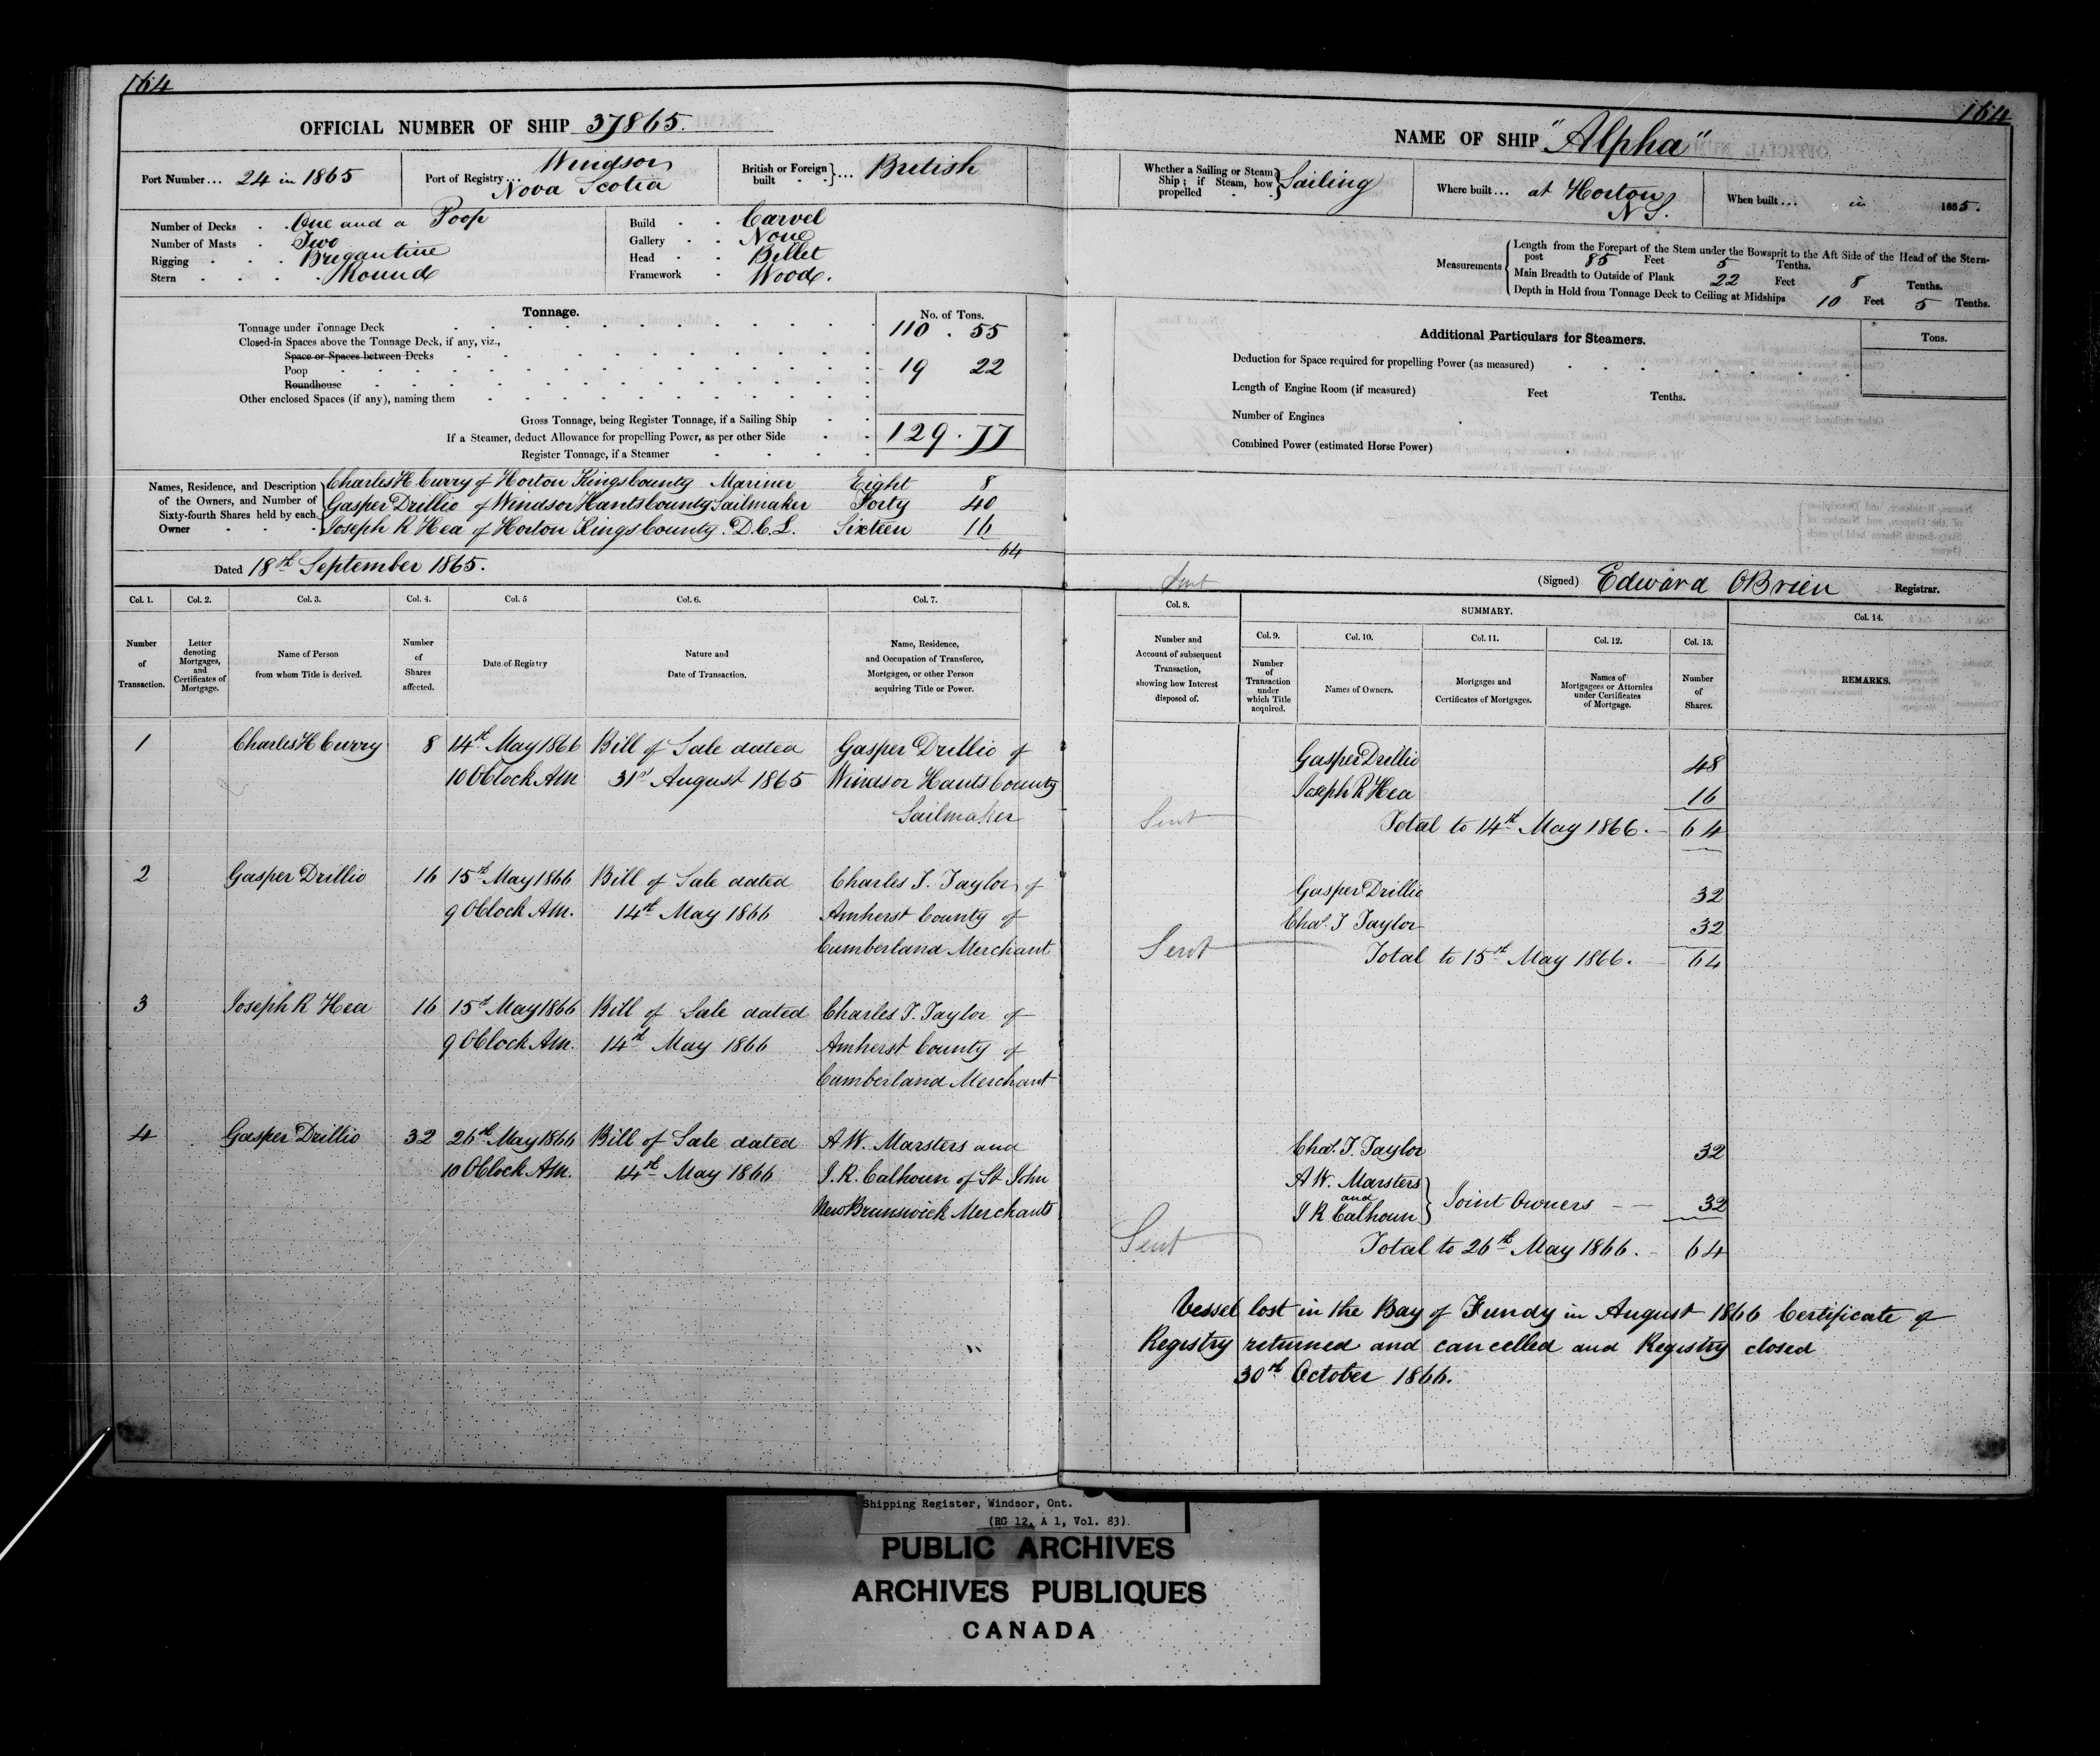 164
OFFICIAL NUMBER OF SHIP 37865.
Port Number... 24 in 1865
Port of Registry... Windsor
Nova Scotia
British or Foreign built } ... British
Number of Decks . . One and a Poop
Number of Masts . Two
Rigging . . . Brigantine
Stern . . . . Round
Build . . Carvel
Gallery . . None
Head . . Billet
Framework . Wood.
Tonnage.
No. of Tons.
Tonnage under Tonnage Deck 110 . 55
Closed-in Spaces above the Tonnage Deck, if any, viz.,
Space or Spaces between Decks
Poop 19 22
Roundhouse
Other enclosed Spaces (if any), naming them
Gross Tonnage, being Register Tonnage, if a Sailing Ship
If a Steamer, deduct Allowance for propelling Power, as per other Side 129 . 77
Register Tonnage, if a Steamer
Names, Residence, and Description of the Owners, and Number of Sixty-fourth Shares held by each Owner
Charles H Curry of Horton Kings County Mariner Eight 8
Gasper Drillio of Windsor Hants County Sailmaker Forty 40
Joseph R Hea of Horton Kings County. D.C.L. Sixteen 16
64
Dated 18th September 1865.
Col. 1. Col. 2. Col. 3. Col. 4. Col. 5 Col. 6. Col. 7.
Number of Transaction.
Letter denoting Mortgages, and Certificates of Mortgage.
Name of Person from whom Title is derived.
Number of Shares affected.
Date of Registry
Nature and Date of Transaction.
Name, Residence, and Occupation of Transferee, Mortgagee, or other Person acquiring Title or Power.
1 Charles H Curry 8 14th May 1866 Bill of Sale dated Gasper Drillio of
10 OClock AM 31st August 1865 Windsor Hants County
Sailmaker
2 Gasper Drillio 16 15th May 1866 Bill of Sale dated Charles T. Taylor of
9 OClock AM. 14th May 1866 Amherst County of
Cumberland Merchant
3 Joseph R Hea 16 15th May 1866 Bill of Sale dated Charles T. Taylor of
9 OClock AM. 14th May 1866 Amherst County of
Cumberland Merchant
4 Gasper Drillio 32 26th May 1866 Bill of Sale dated A W. Marsters and
10 OClock AM. 14th May 1866 J. R. Calhoun of St John
New Brunswick Merchants
164
NAME OF SHIP "Alpha"
Whether a Sailing or Steam Ship; if Steam, how propelled } Sailing
Where built... at Horton
N S.
When built... in 1865.
Measurements
Length from the Forepart of the Stem under the Bowsprit to the Aft Side of the Head of the Stern-
post 85 Feet 5 Tenths.
Main Breadth to Outside of Plank 22 Feet 8 Tenths.
Depth in Hold from Tonnage Deck to Ceiling at Midships 10 Feet 5 Tenths.
Additional Particulars for Steamers.
Tons.
Deduction for Space required for propelling Power (as measured)
Length of Engine Room (if measured) Feet Tenths.
Number of Engines
Combined Power (estimated Horse Power)
Sent
(Signed) Edward OBrien Registrar.
Col. 8. SUMMARY. Col. 14.
Col. 9. Col. 10. Col. 11. Col. 12. Col. 13.
Number and Account of subsequent Transaction, showing how Interest disposed of.
Number of Transaction under which Title acquired.
Names of Owners.
Mortgages and Certificates of Mortgages.
Names of Mortgagees or Attornies under Certificates of Mortgage.
Number of Shares.
REMARKS.
Gasper Drillio 48
Joseph R Hea 16
Sent Total to 14th May 1866. 64
Gasper Drillio 32
Chas. T Taylor 32
Sent Total to 15th May 1866. 64
Chas. T. Taylor 32
A W. Marsters
and
J R Calhoun } Joint Owners 32
Sent Total to 26th May 1866. 64
Vessel lost in the Bay of Fundy in August 1866 Certificate of
Registry returned and cancelled and Registry closed
30th October 1866.
Shipping Register, Windsor, Ont.
(RG 12, A 1, Vol. 83)
PUBLIC ARCHIVES
ARCHIVES PUBLIQUES
CANADA